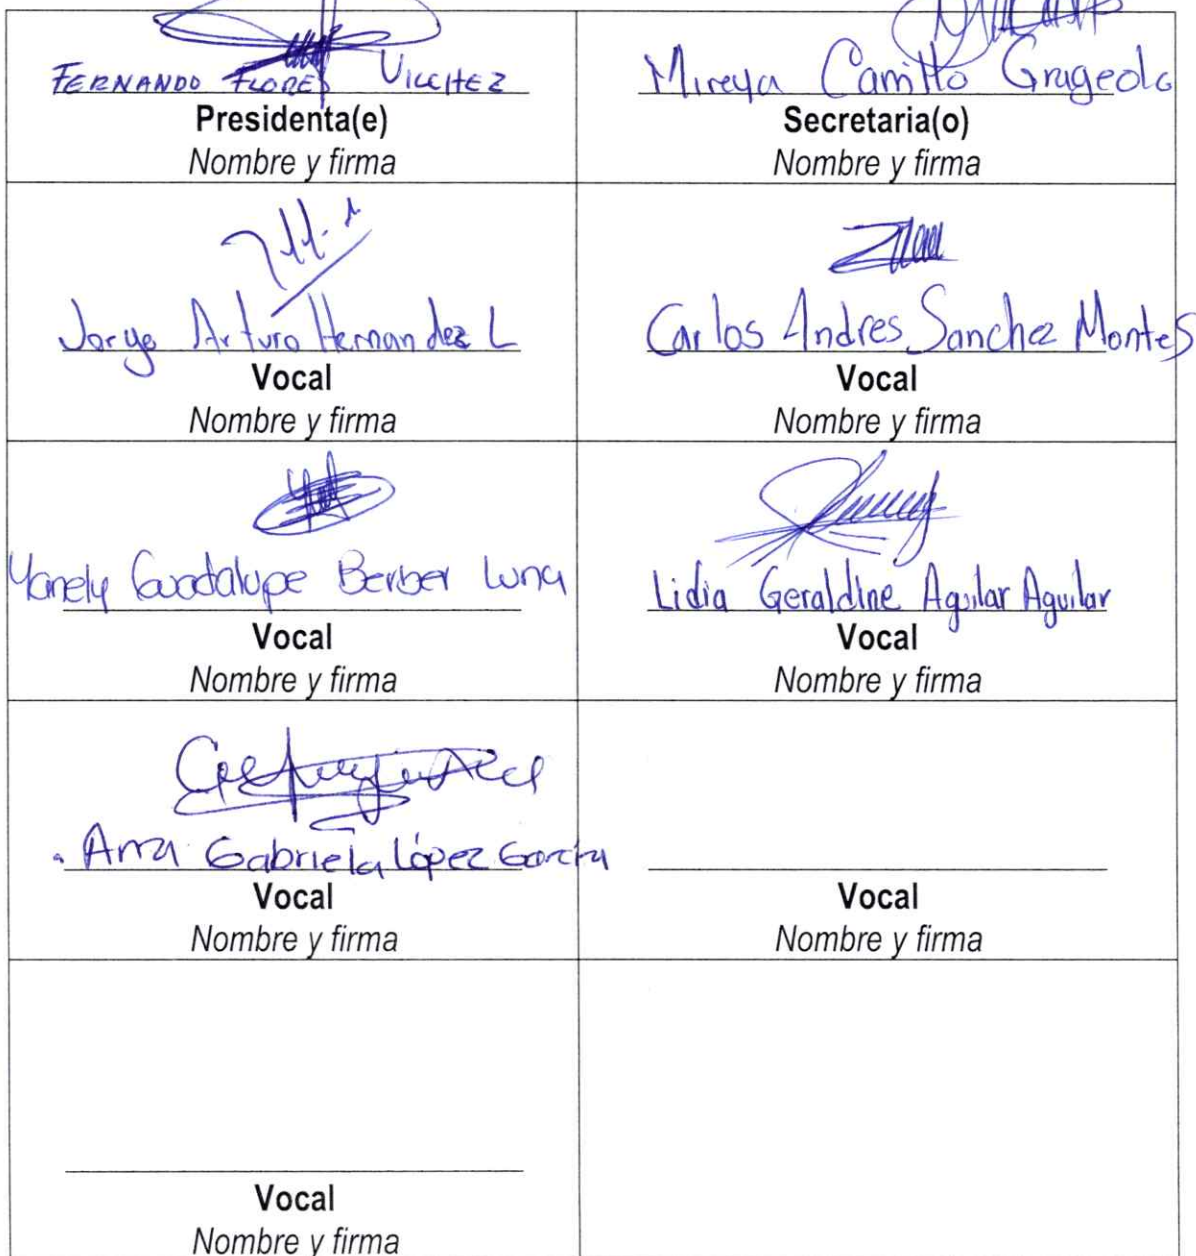 FERNANDO FLORES VILCHEZ
Presidenta(e)
Nombre y firma
Mireya Carrillo Grageola
Secretaria(o)
Nombre y firma
Jorge Arturo Hernandez L
Vocal
Nombre y firma
Carlos Andres Sanchez Montes
Vocal
Nombre y firma
Yanely Guadalupe Berber Luna
Vocal
Nombre y firma
Lidia Geraldine Aguilar Aguilar
Vocal
Nombre y firma
Ana Gabriela López García
Vocal
Nombre y firma
Vocal
Nombre y firma
Vocal
Nombre y firma